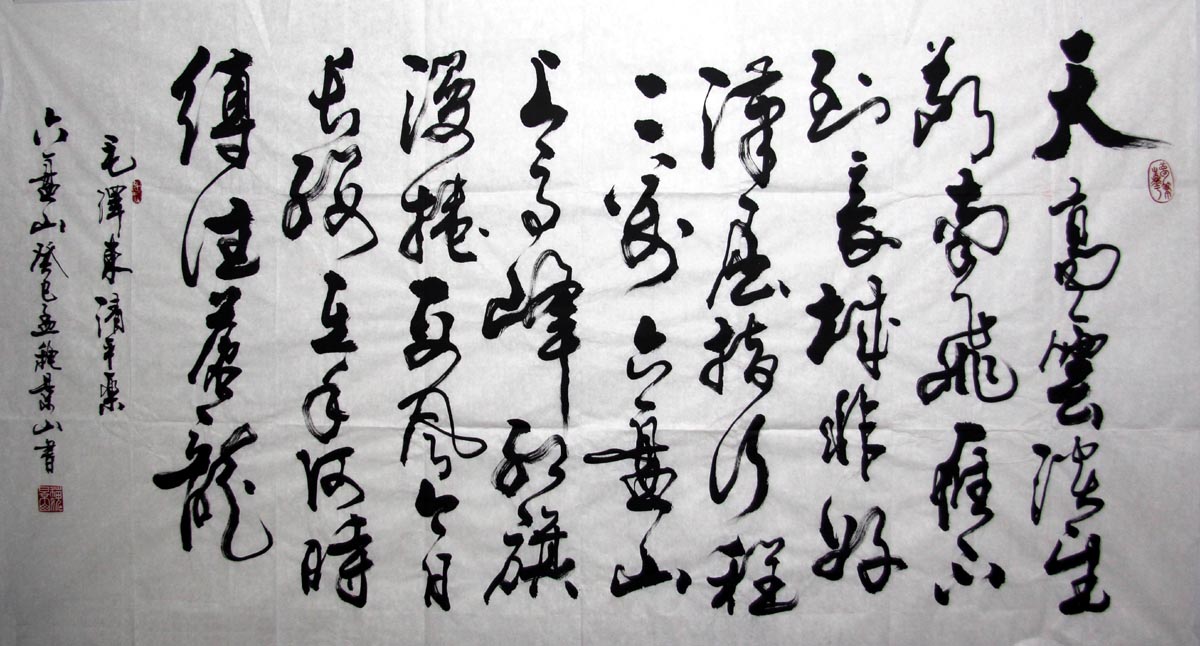 天高雲淡望
斷南飛雁不
到長城非好
漢屈指行程
二萬六盤山
上高峰紅旗
漫捲西風今日
長纓在手何時
縛住蒼龍
毛澤東清平樂
六盤山癸巳孟龝景山書